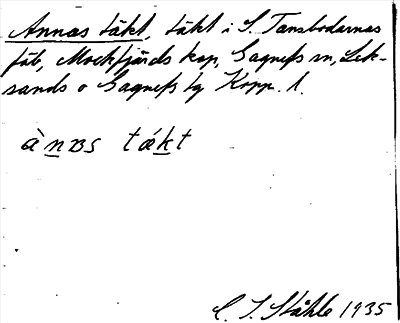 Annas täkt, täkt i S. Tansbodarnas
fäb, Mockfjärds kap, Gagnefs sn, Lek-
sands o Gagnefs tg Kopp. l.
ànas tækt
C. I. Ståhle 1935